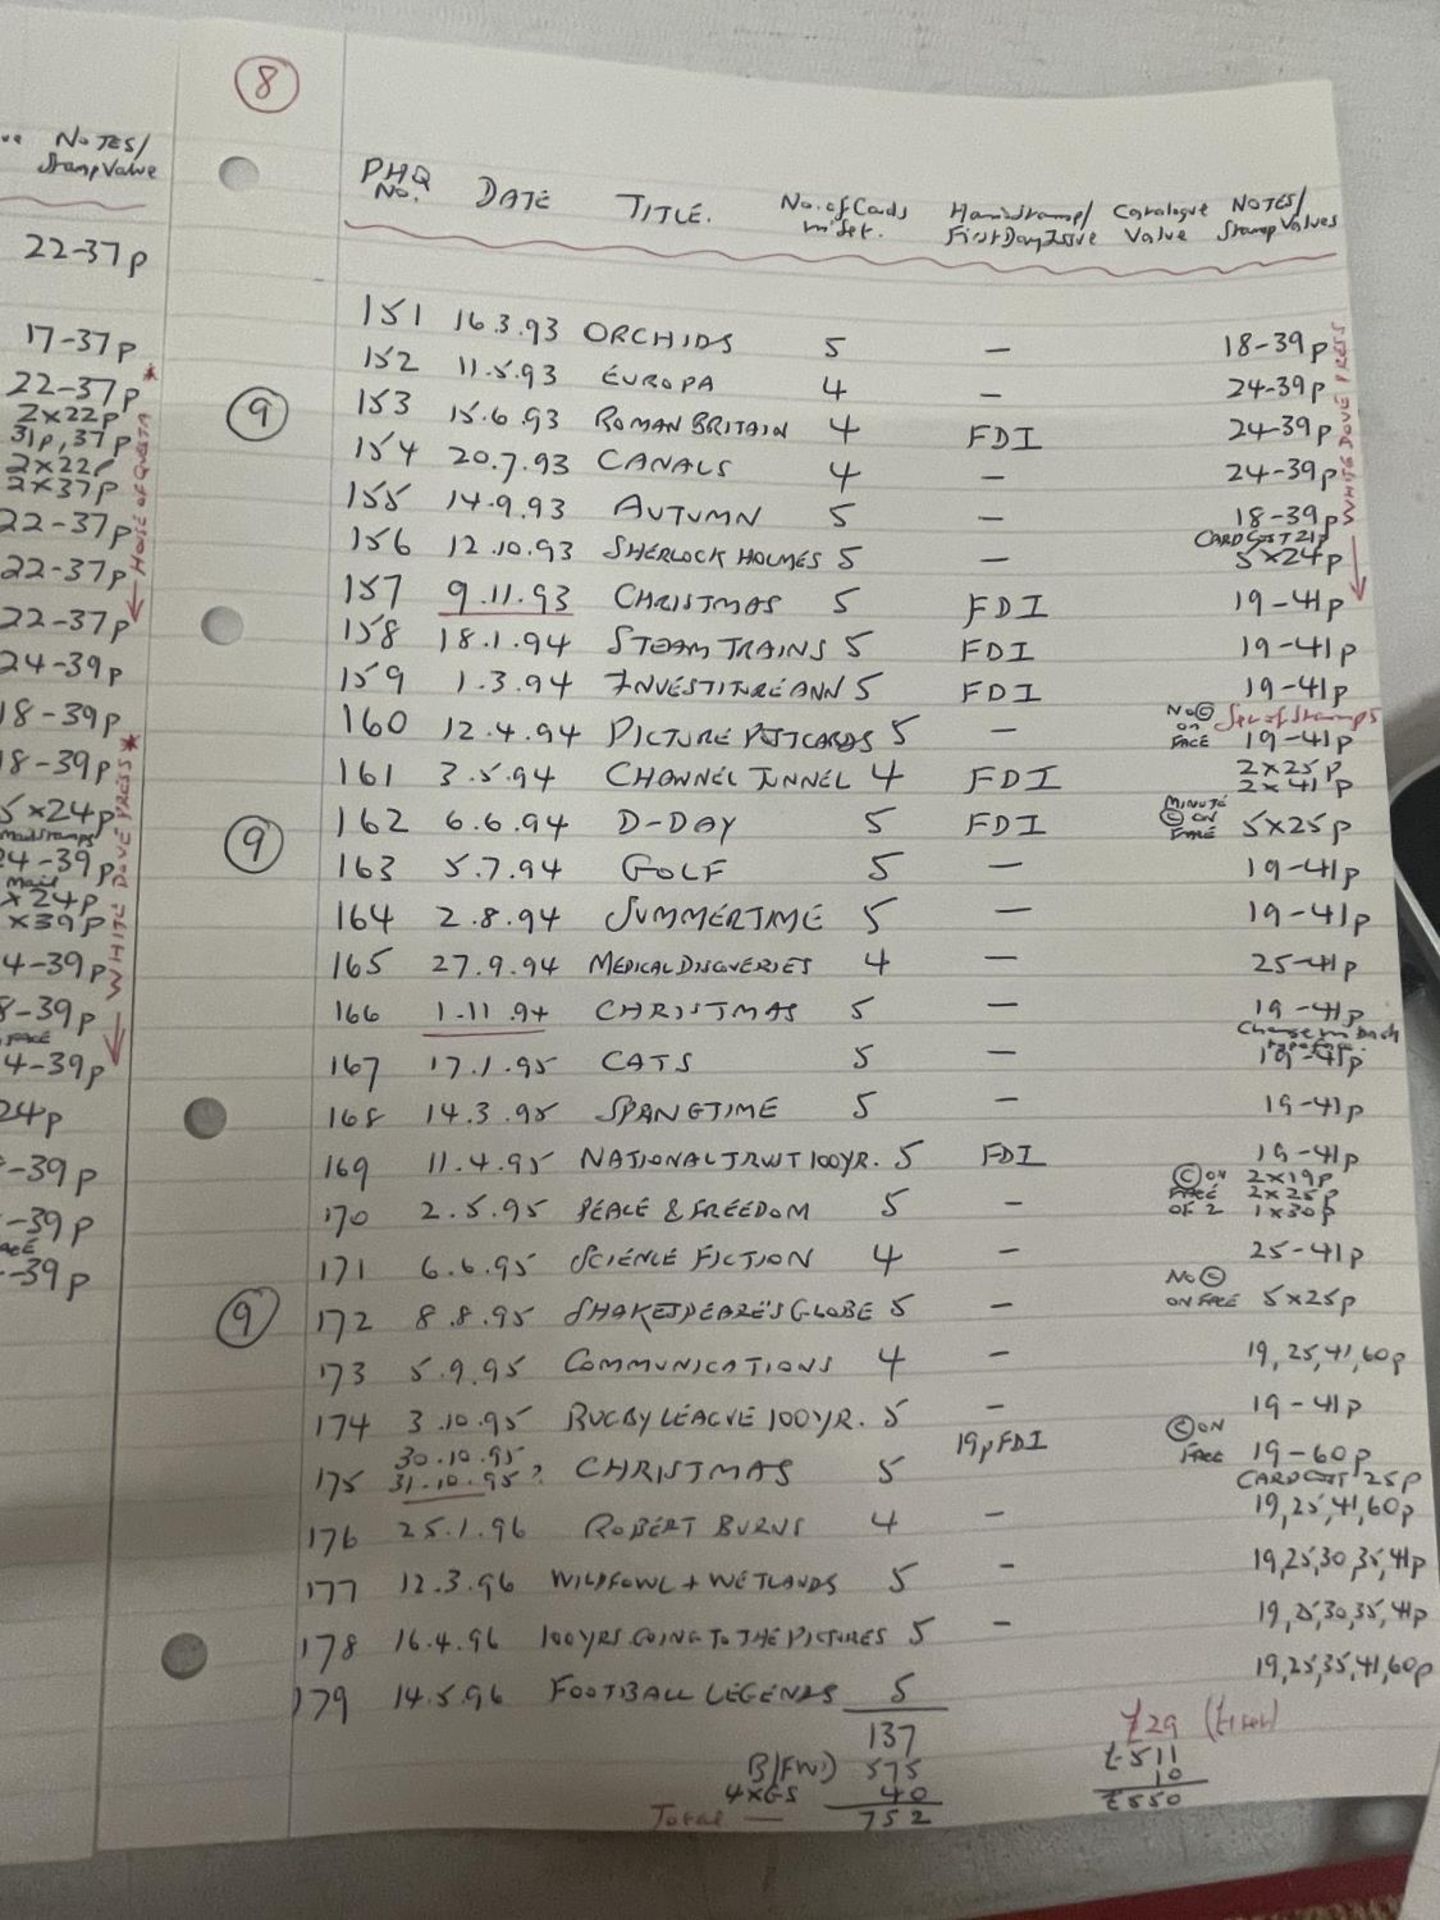 NOTES/
Stamp Value
22-37p
17-37p
22-37p*
2x22p
31p, 37p
2x22p
2x37p
22-37p
22-37p
22-37p
24-39p
18-39p
18-39p
5x24p
24-39p
Mail
x24p
x39p
4-39p
8-39p
4-39p
24p
-39p
-39p
-39p
HOUSE OF QUESTA
WHITE DOVE PRESS*
8
PHQ No. DATE TITLE. No. of Cards in Set. Handstamp/ First Day Issue Catalogue Value NOTES/ Stamp Values
151 16.3.93 ORCHIDS 5 — 18-39p
152 11.5.93 EUROPA 4 — 24-39p
9
153 15.6.93 ROMAN BRITAIN 4 FDI 24-39p
154 20.7.93 CANALS 4 — 24-39p
155 14.9.93 AUTUMN 5 — 18-39p
CARD COST 21p
156 12.10.93 SHERLOCK HOLMES 5 — 5x24p
WHITE DOVE PRESS
157 9.11.93 CHRISTMAS 5 FDI 19-41p
158 18.1.94 STEAM TRAINS 5 FDI 19-41p
159 1.3.94 INVESTITURE ANN 5 FDI 19-41p
Set of Stamps
160 12.4.94 PICTURE POSTCARDS 5 — NO © on FACE 19-41p
161 3.5.94 CHANNEL TUNNEL 4 FDI 2x25p 2x41p
162 6.6.94 D-DAY 5 FDI MINUTE © ON FACE 5x25p
9
163 5.7.94 GOLF 5 — 19-41p
164 2.8.94 SUMMERTIME 5 — 19-41p
165 27.9.94 MEDICAL DISCOVERIES 4 — 25-41p
166 1.11.94 CHRISTMAS 5 — 19-41p
Change in Back typeface.
167 17.1.95 CATS 5 — 19-41p
168 14.3.95 SPRINGTIME 5 — 19-41p
169 11.4.95 NATIONAL TRUST 100YR. 5 FDI 19-41p
170 2.5.95 PEACE & FREEDOM 5 — © ON FACE OF 2 2x19p 2x25p 1x30p
171 6.6.95 SCIENCE FICTION 4 — 25-41p
9
172 8.8.95 SHAKESPEARE'S GLOBE 5 — NO © ON FACE 5x25p
173 5.9.95 COMMUNICATIONS 4 — 19, 25, 41, 60p
174 3.10.95 RUGBY LEAGUE 100YR. 5 — 19-41p
30.10.95
175 31.10.95? CHRISTMAS 5 19p FDI © ON FACE 19-60p
CARD COST 25p
176 25.1.96 ROBERT BURNS 4 — 19,25,41,60p
177 12.3.96 WILDFOWL + WETLANDS 5 — 19,25,30,35,41p
178 16.4.96 100YRS GOING TO THE PICTURES 5 — 19,25,30,35,41p
179 14.5.96 FOOTBALL LEGENDS 5 19,25,35,41,60p
137 £29
B/FWD 575 £511
4xGS 40 10
Total — 752 £550